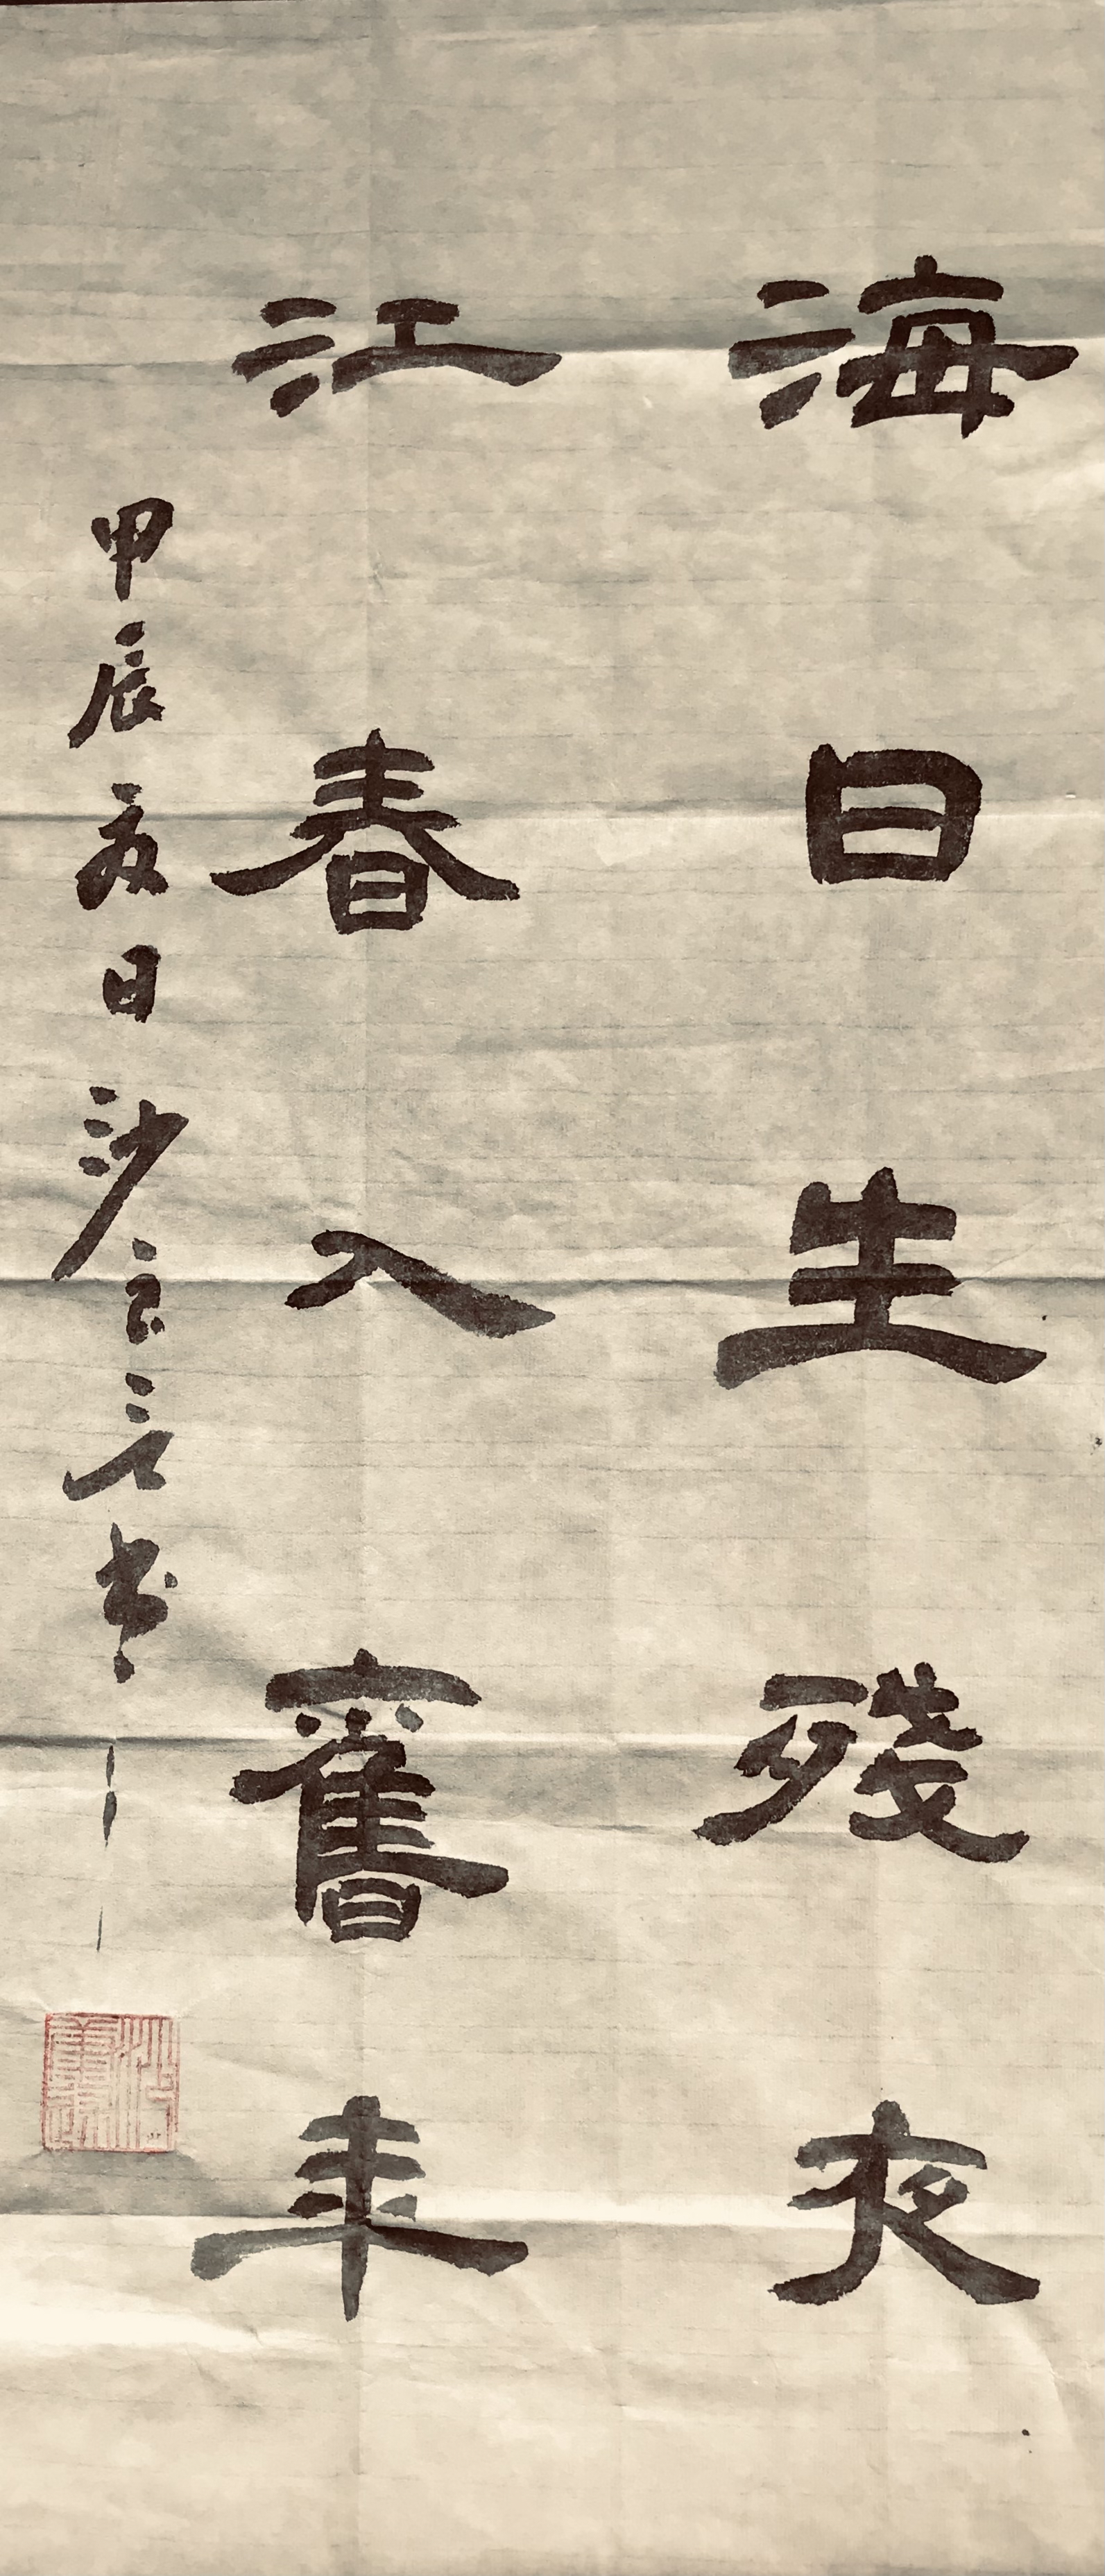 海日生殘夜
江春入舊年
甲辰夏日沙言書